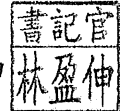 書記官
林盈伸